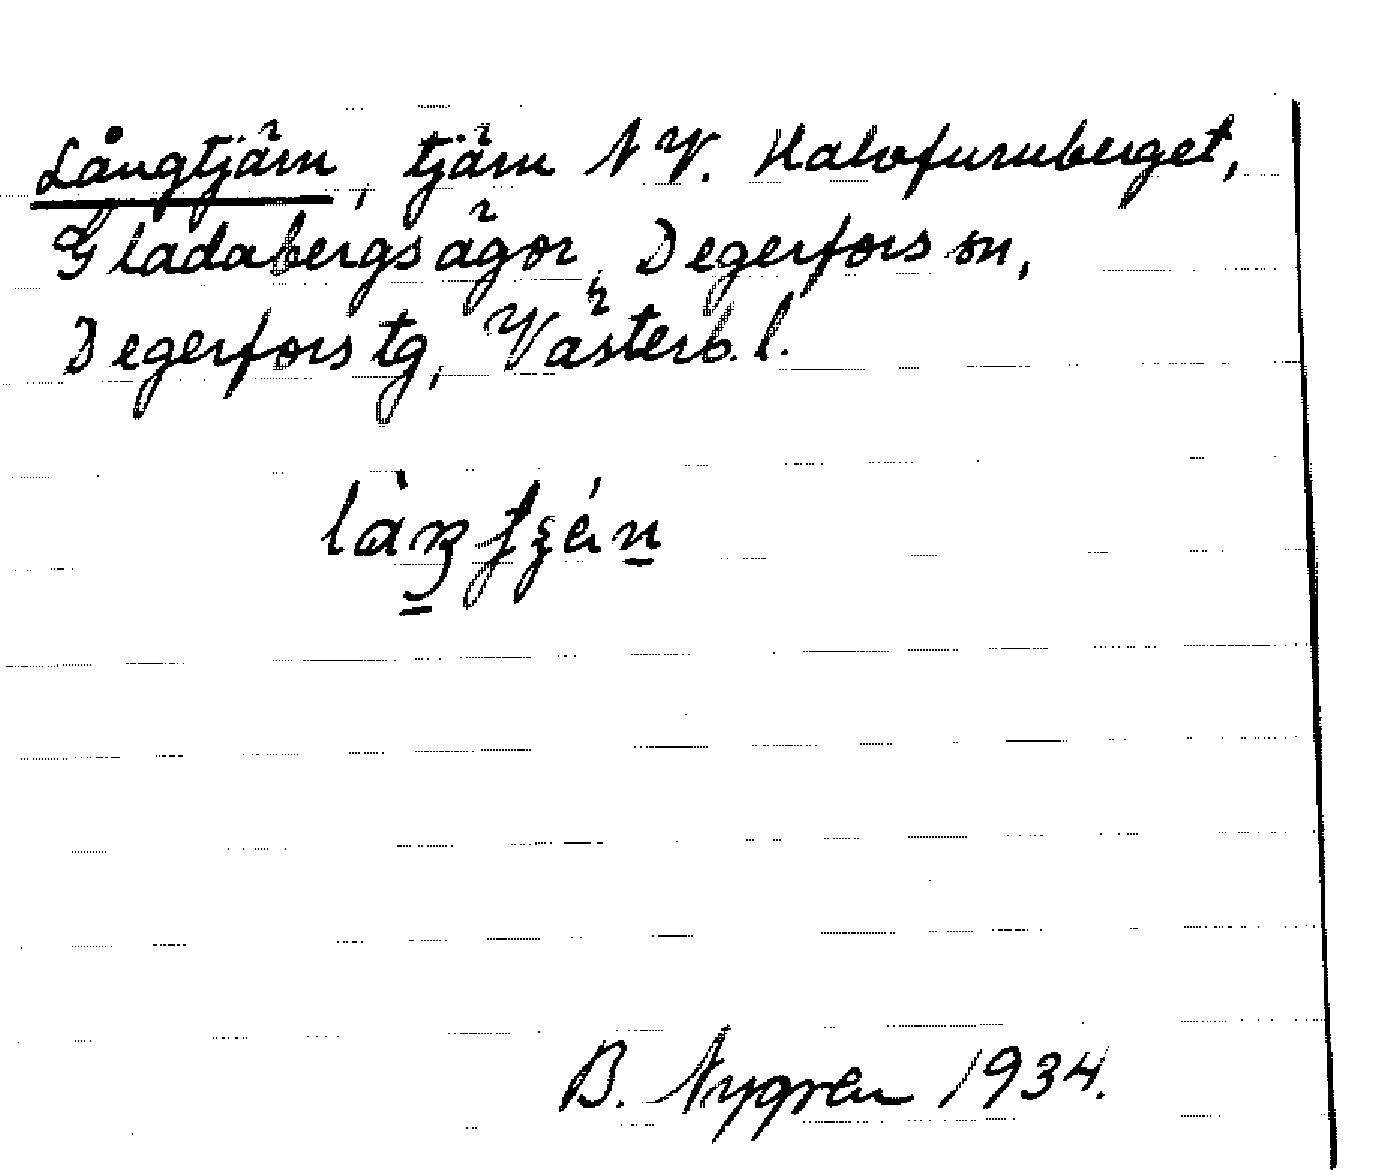 Långtjärn, tjärn NV. Halvfurnberget,
Gladabergs ägor, Degerfors sn,
Degerfors tg, Västerb. l.
B. Nygren 1934.